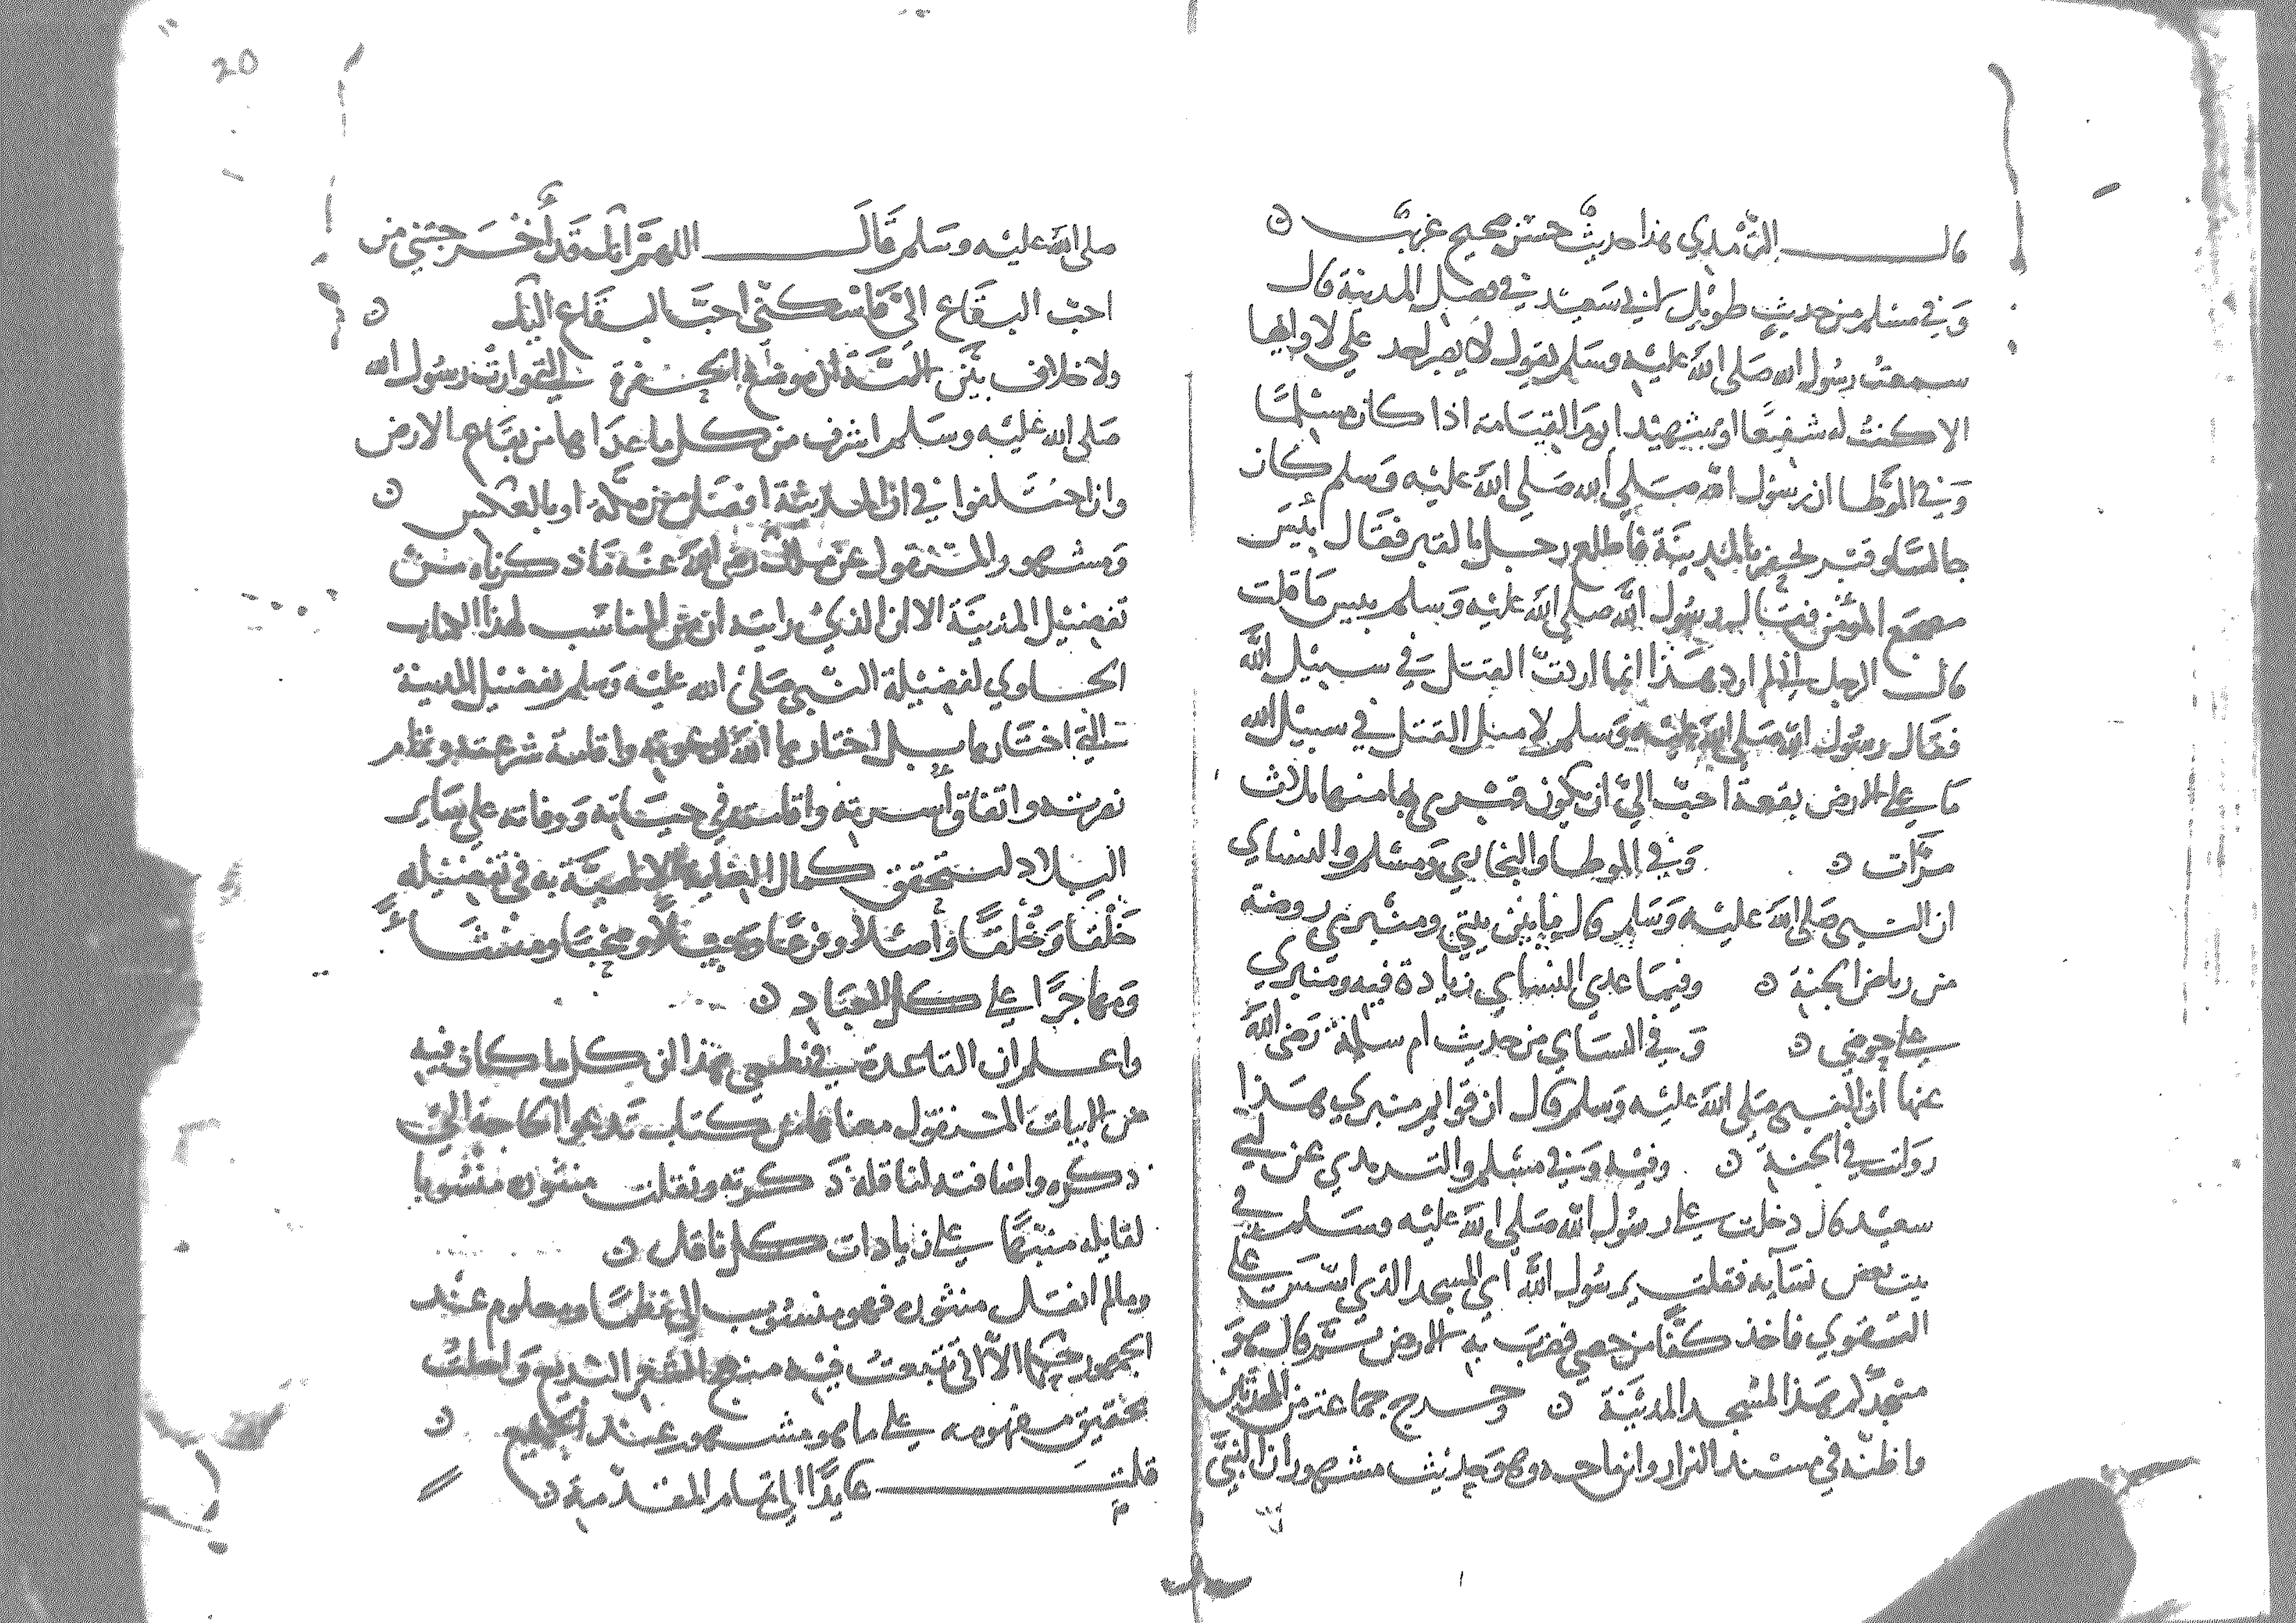 قال الترمذي هذا حديث حسن صحيح غريب
وَفي مسلم من حديث طويل لابي سَعيد في فضل المدينة قال
سمعت رسُول الله صَلى اللهُ عليْه وسَلم يقول لا يصبر احد على لاوائها
الا كنتُ له شفيعًا او شهيْدا يومَ القيَامة اذا كان مسْلمًا
وَفي الموَّطا ان رسوْل الله صَلى اللهُ عليْه وَسلم كان
جالسًا وقبْر يحفر بالمدينَة فاطلع رجل في القبر فقال بئسَ
مضجع المؤمن فقال رسُول اللَّه صلى اللهُ عليْه وَسلم بيس مَا قلت
قال الرجل اني لم ارد هَذا انما اردتُ القتل في سبيْل اللَّه
فقال رسُول الله صَلى الله عليْه وَسلم لا مثل القتل في سبيْل الله
مَا على الارض بقعة احبّ اليَّ ان يكون قبْري بها منها ثلاث
مرَّات وَفي الموطا والبخاري وَمسْلم والنساي
ان النبي صَلى اللهُ عليْه وَسَلم قال ما بين بيتي ومنْبري روضة
من رياض الجنة وفيمَا عدى النساي زيادة فيه ومنبري
على حوضي وَفي النساي من حديث ام سلمة رَضي اللهُ
عنها ان النبي صَلى اللهُ عليْه وَسلم قال ان قوايم منبري هَذا
رَواتب في الجنة وفيْه وَفي مسْلم والترمدي عن ابي
سعيْد قال دخلت على رسُول الله صَلى اللهَ عليْه وسَلم في
بيت بعض نسَآيه فقلت يرسُول اللَّه اي المسجد الذي اسّسَ على
التقوى فاخذ كفًّا من حصى فضرَب به الارض ثمَّ قال هوَ
مسْجدكم هَذا المسْجد المدينَة وخرج جماعة من المحدثين
واظنّه في مسْند البزار وابن ماجه وهوَ حديْث مشهور ان النبيَّ
صلى اللهُ عليْه وسَلم قَالَ اللهمَّ انك قَد أَخْرَجتني من
احبّ البقَاع اليَّ فاسْكنّي احبَّ البقَاع اليْك
ولا خلاف بيْن الامَّة ان موضع الحفرة التي وارت رسُول الله
صَلى الله عليْه وسَلم اشرف من كل ما عدَاها من بقَاع الارض
وان اختلفوا في ان المدينة افضَل من مكَّة او بالعكس
وَمشهور والمنقول عن مالك رضي اللهُ عنْه مَا ذكرناه من
تفضيْل المدينَة الا ان الذي رايته ان من المناسب لهذا الكتاب
الحاوي لفضيْلة النَّبي صَلى الله عليْه وَسلم تفضيْل المدينة
التي اختارها بل اختارها اللهُ لدعوته واقامة شرعته ونظام
نصرته واتفاق أسرته واقامته في حيَاته وَوفاته على سَاير
البلاد لتحقق كمال العناية الالهيَّة به في تفضيْله
خَلْقًا وَخُلُقًا وَأصْلًا وفرعًا ومنشَاءً
وَمهاجرًا على كل العبَاد
واعلم ان القاعدة في نظمي هذا ان كل ما كان فيه
من الابيات المنقول معناها من كتاب تدعوا الحاجة الى
ذكره واضافته لناقله ذكرته ونقلت منثوره منسُوبا
لقايله منبّهًا على زيادات كل ناقل
وما لم انقل منثوره فهو منسُوب الى نظمًا ومعلوم عند
الجمهور الا اني تتبعتُ فيْه منهج الشعر البديع وَاحلتُ
تحقيق مفهومه على ما هو مشهور عند الجميع
قلت عايدًا الى تمام المقدّمة